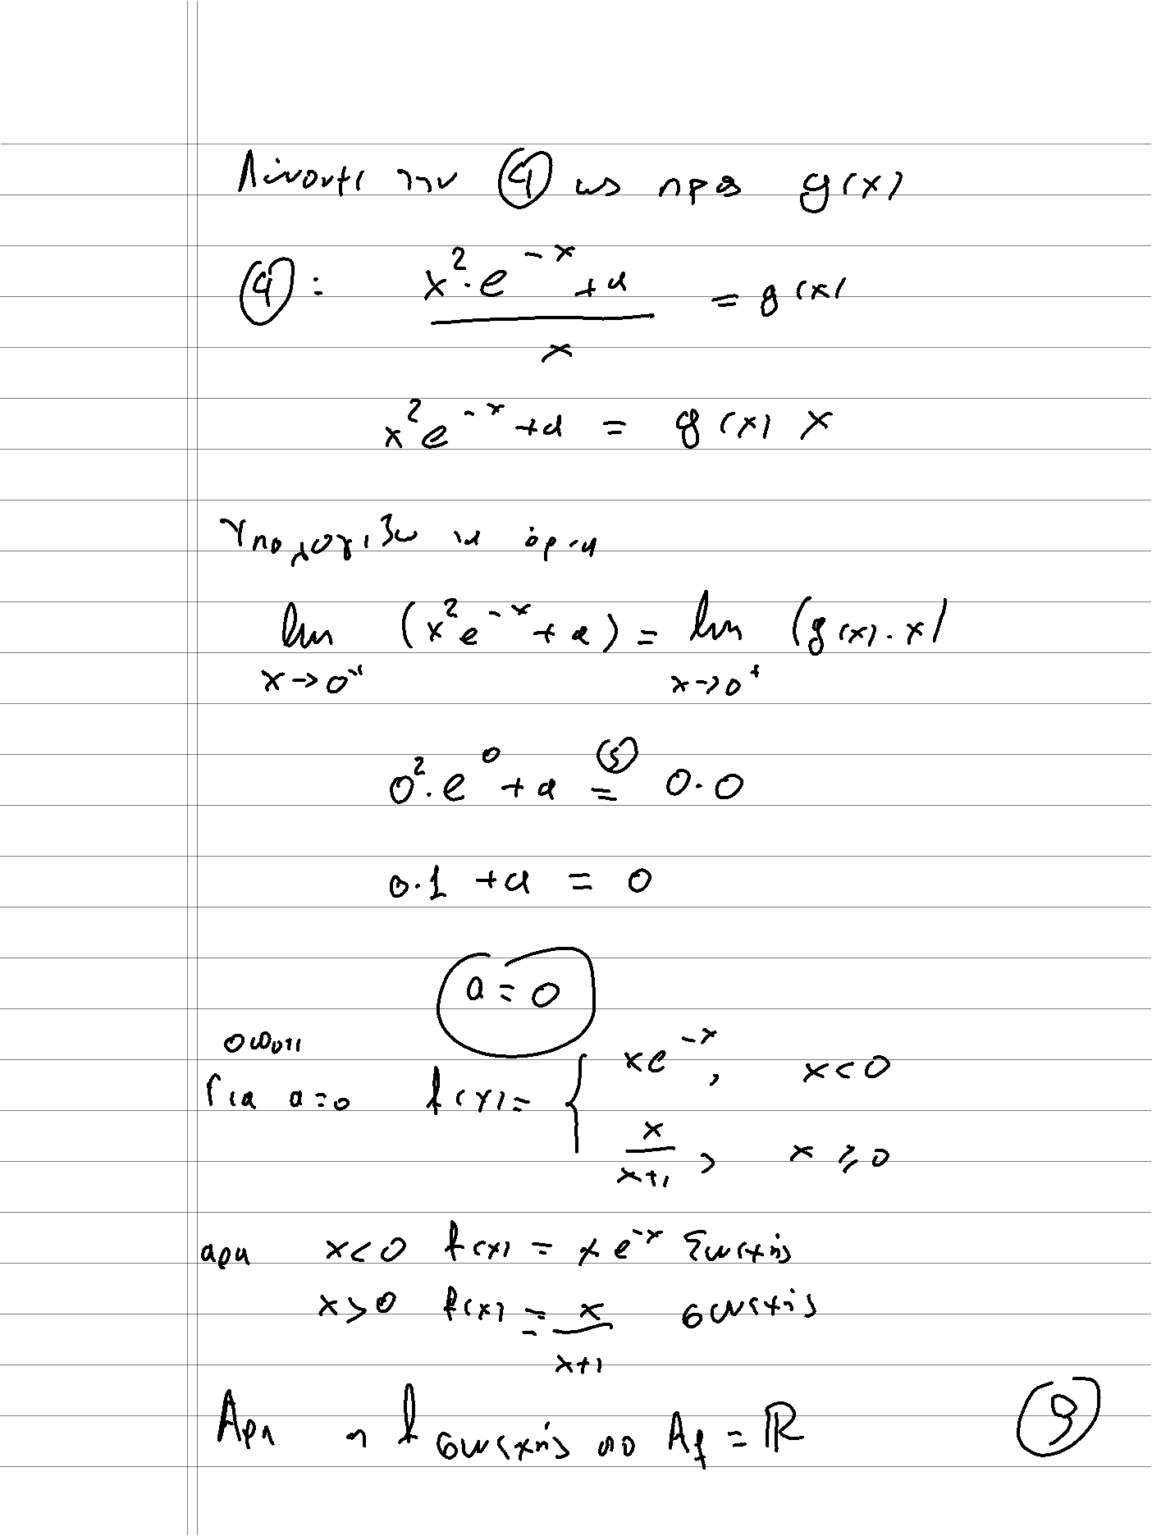 Λύνοντας την ④ ως προς g(x)
④: (x²·e^{-x}+α)/x = g(x)
x²e^{-x}+α = g(x) x
Υπολογίζω τα όρια
lim_{x→0⁺} (x²e^{-x}+α) = lim_{x→0⁺} (g(x)·x)
0²·e⁰+α =^{⑤} 0·0
0·1 +α = 0
α=0
οπότε
Για α=0 f(x)= { xe^{-x}, x<0
x/(x+1), x≥0
άρα x<0 f(x) = xe^{-x} Συνεχής
x>0 f(x) = x/(x+1) συνεχής
Άρα η f συνεχής στο A_f = ℝ
⑨